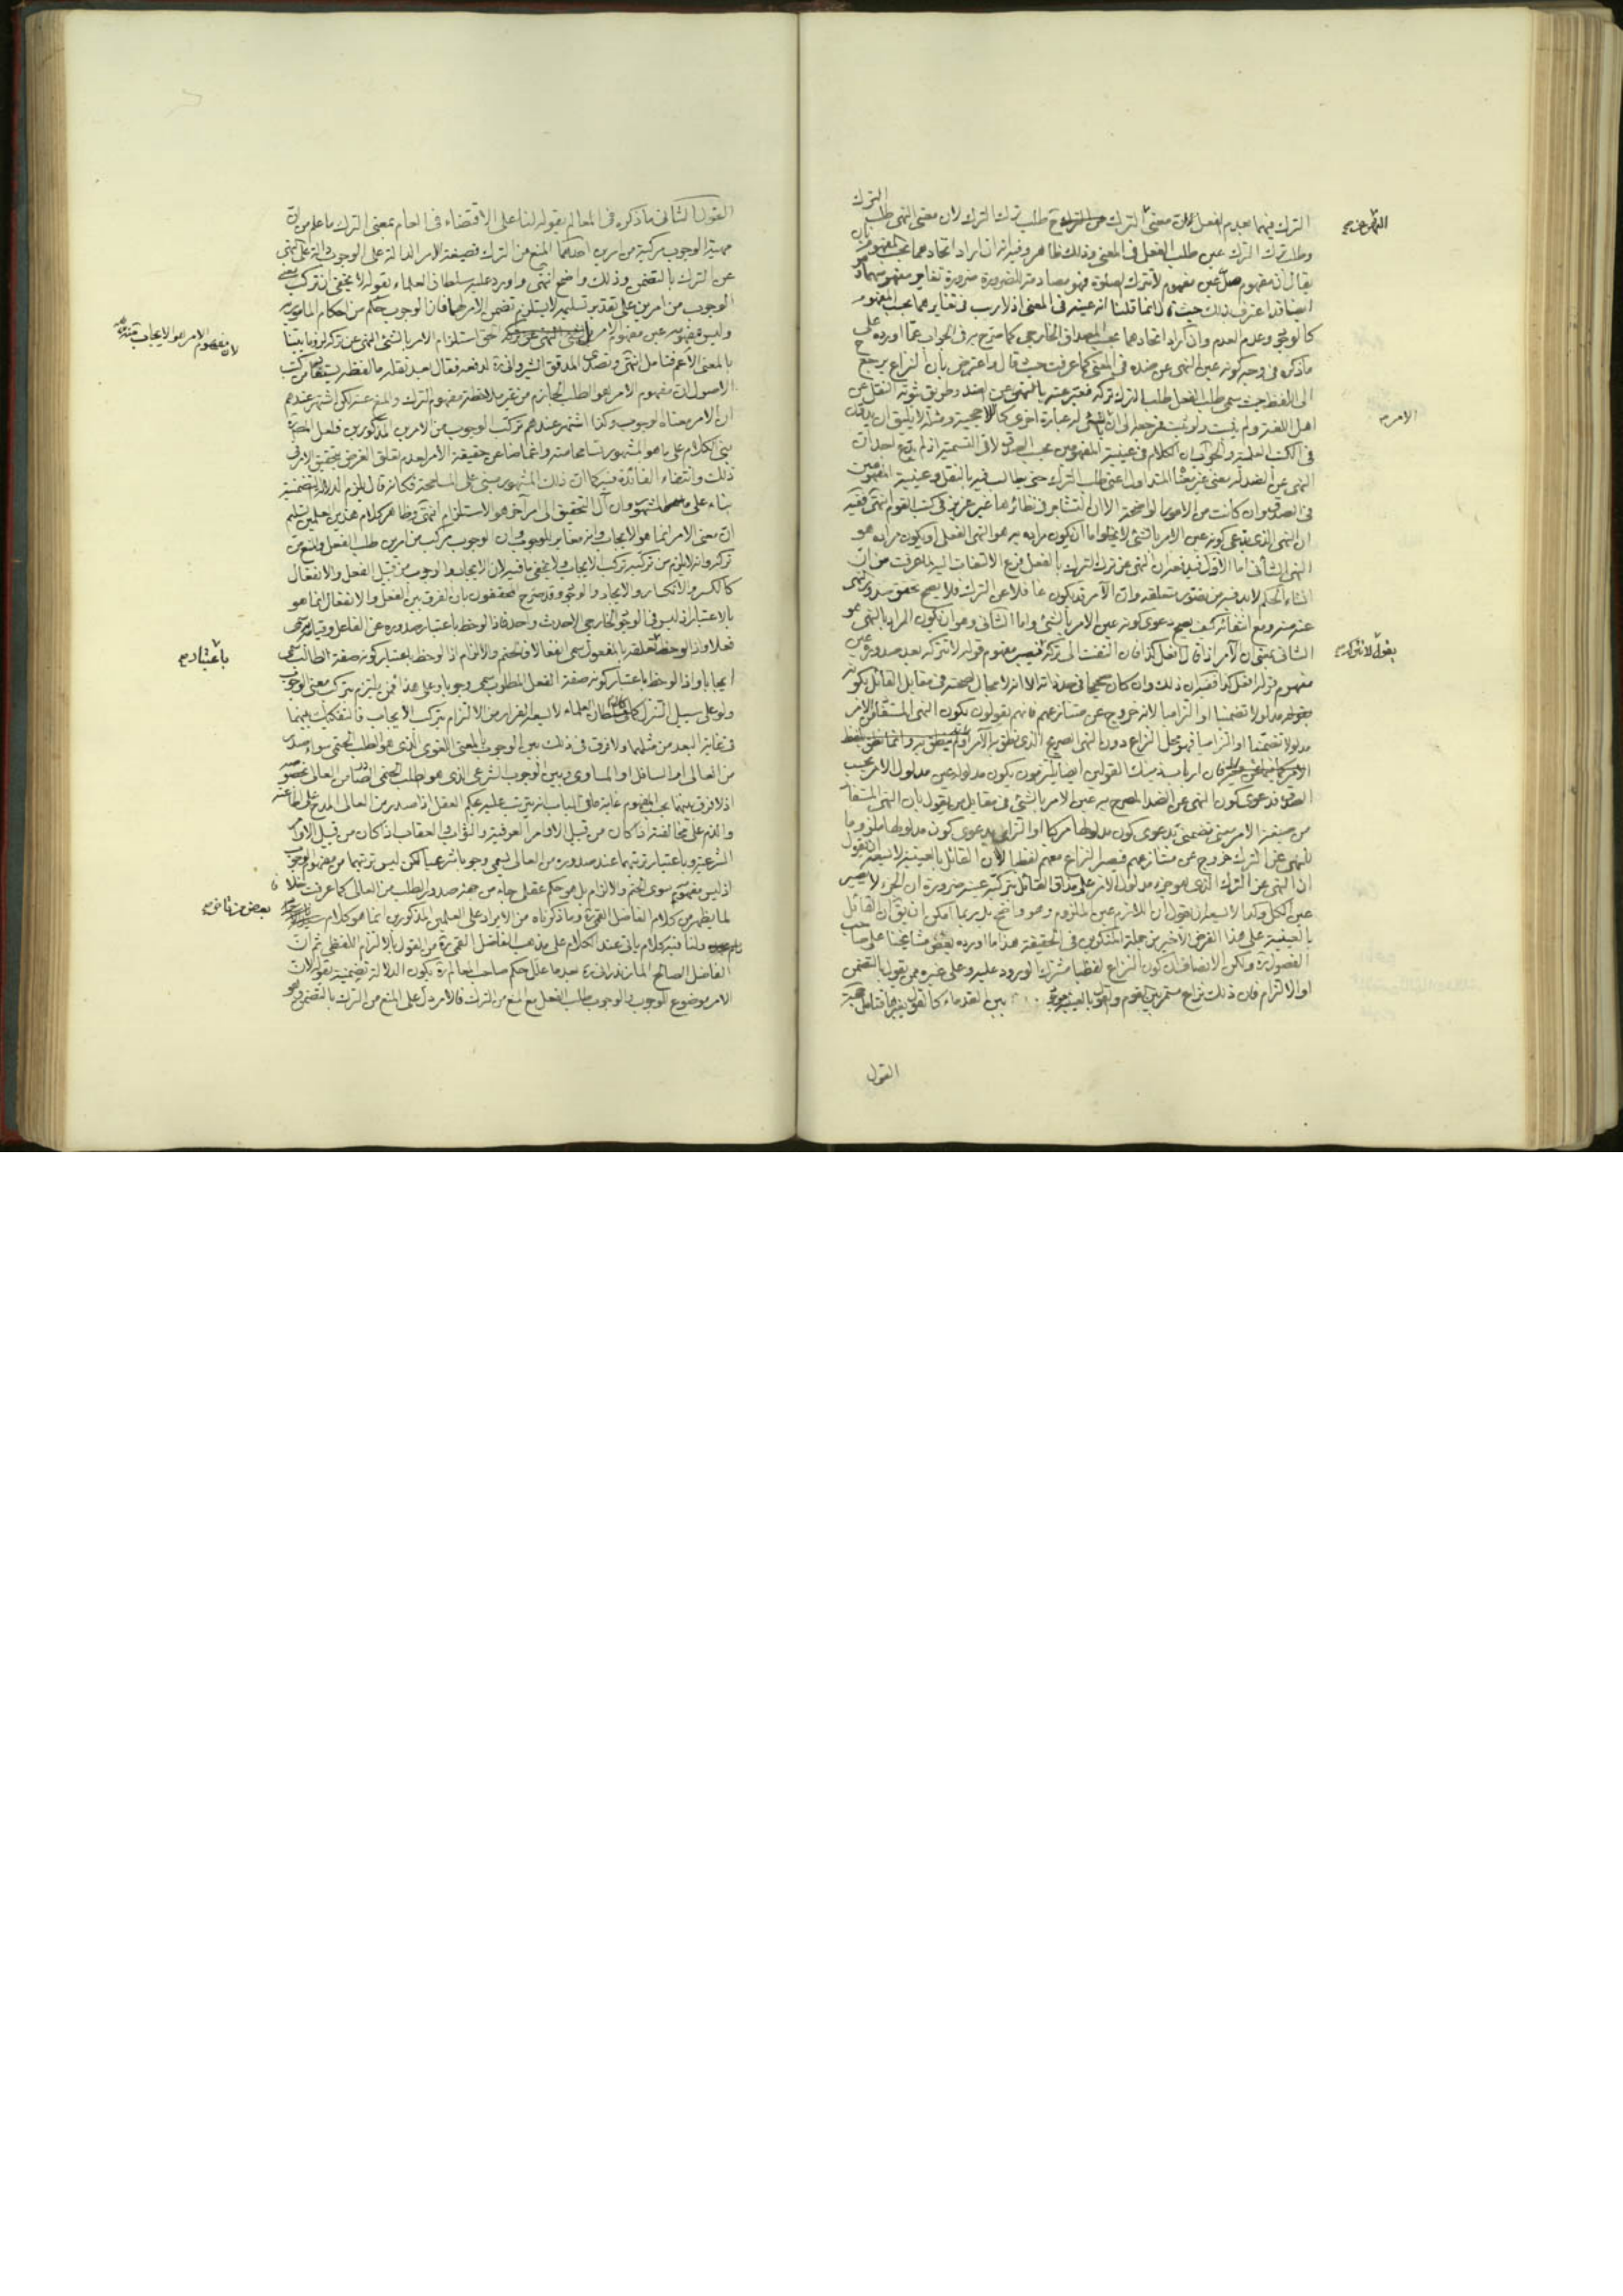 الترك
الترك فيهما بعدم الفعل لان معنى الترك طلب ترك الترك لان معنى النهى طلب
وطلب ترك الترك عين طلب الفعل فى المعنى وذلك ظاهر وفيه انه ان اراد اتحادهما بحسب المفهوم
يقال ان مفهوم صل عين مفهوم لا تترك الصلوة فهو مصادمة للضرورة ضرورة تغاير مفهوميهما
ايضا قد اعترف بذلك حيث قال انما قلنا انه عينه فى المعنى اذ لا ريب فى تغايرهما بحسب المفهوم
كالوجود وعدم العدم وان اراد اتحادهما بحسب المصداق الخارجى كما صرح به فى الجواب عما اورده على
ما ذكره فى وجه كونه عين النهى عن ضده فى المعنى كما عرفت حيث قال واعترض بان النزاع يرجع
الى اللفظ حيث سمى طلب الفعل طلبا لترك تركه فعبر عنه بالنهى عن الضد وطريق ثبوته النقل عن
اهل اللغة ولم يثبت ولو ثبت فمرجعه الى ان الشئ له عبارة اخرى
فى الكتب العلمية والجواب ان الكلام فى عينية المفهومين بحسب الصدق لا فى التسمية اذ لم يدع احد ان
النهى عن الضد
فى الصدق وان كانت من الامور الواضحة الا ان
ان النهى الذى يدعى كونه عين الامر بالشئ لا يخلوا اما ان يكون مراده به هو النهى الفعلى او يكون مراده هو
النهى الشأنى اما الاول ففيه ان النهى عن ترك الترك بالفعل فرع الالتفات اليه لما عرفت من ان
انشاء الحكم لابد فيه من تصور متعلقه وان الآمر قد يكون غافلا عن الترك فلا يصح تحقق صدور النهى
عنه ومع انتفائه كيف يصح دعوى كونه عين الامر بالشئ واما الثانى وهو ان يكون المراد بالنهى هو
الشأنى بمعنى ان الآمر اذا قال افعل كذا فان التفت الى تركه فيصير مفهوم قوله لا تتركه بعد صدوره عين
مفهوم قوله افعل كذا ففيه ان ذلك وان كان صحيحا فى حد ذاته الا انه لا مجال لصحته فى مقابل القائل بكونه
مدلولا تضمنيا او التزاميا لانه خروج عن متنازعهم فانهم يقولون بكون النهى المستفاد من الامر
مدلولا تضمنيا او التزاميا فهو محل النزاع دون النهى الصريح الذى
فان ارباب ذينك القولين ايضا يلتزمون بكون مدلوله عين مدلول الامر بحسب
الصدق فدعوى كون النهى عن الضد المصرح به عين الامر بالشئ فى مقابل من يقول بان النهى المستفاد
من صيغة الامر معنى تضمنى يدعوى كون مدلولها مركبا او التزامى يدعوى كون مدلولها ملزوما
للنهى عن الترك خروج عن متنازعهم فيصير النزاع معهم لفظيا لان القائل بالعينية لا يسعه ان يقول
ان النهى عن الترك الذى هو جزء مدلول الامر على مذاق القائل بتركبه عينه ضرورة ان الجزء لا يصير
عين الكل وكذا لا يسعه ان يقول ان اللازم عين الملزوم وهو واضح بل ربما امكن ان يق ان القائل
بالعينية على هذا الفرض الاخير من جملة المنكرين فى الحقيقة هذا ما اورده بعض مشايخنا على صاحب
الفصول ره ولكن الانصاف ان كون النزاع لفظيا مشترك الورود عليه وعلى غيره ممن يقول بالتضمن
او الالتزام فان ذلك نزاع مستمر بين القوم والقول بالعينية بين القدماء كالقول بغيرها فتامل
الامر
القول
القول الثانى ما ذكره فى المعالم بقوله لنا على الاقتضاء فى العام بمعنى الترك ما علم من ان
مهية الوجوب مركبة من امرين احدهما المنع من الترك فصيغة الامر الدالة على الوجوب دالة على النهى
عن الترك بالتضمن وذلك واضح انتهى واورد عليه سلطان العلماء بقوله لا يخفى ان تركب معنى
الوجوب من امرين على تقدير تسليمه لا يستلزم تضمن الامر لهما فان الوجوب حكم من احكام المامور به
وليس مفهومه عين مفهوم الامر حتى استلزام الامر بالشئ النهى عن تركه لزوما بينا
بالمعنى الاعم فتامل انتهى وتصدى المدقق الشيروانى ره لدفعه فقال بعد نقله ما لفظه يستفاد من كتب
الاصول ان مفهوم الامر هو الطلب الجازم من غير ملاحظة مفهوم الترك والمنع عنه لكن اشتهر عندهم
ان الامر معناه الوجوب وكذا اشتهر عندهم تركب الوجوب من الامرين المذكورين فلعل المص ره
بنى الكلام على ما هو المشهور تسامحا منه واغماضا عن حقيقة الامر لعدم تعلق الغرض بتحقيق الامر فى
ذلك وانتفاء الفائدة فيه كما ان ذلك المشهور مبنى على المسامحة فكانه قال يلزم الدلالة التضمنية
بناء على ما هو المشهور وان آل التحقيق الى امر آخر هو الاستلزام انتهى وظاهر كلام هذين العلمين تسليم
ان معنى الامر انما هو الايجاب وانه مغاير للوجوب وان الوجوب مركب من امرين طلب الفعل والمنع من
تركه وانه لا يلزم من تركبه تركب الايجاب ولا يخفى ما فيه لان الايجاب والوجوب من قبيل الفعل والانفعال
كالكسر والانكسار والايجاد والوجود وقد صرح المحققون بان الفرق بين الفعل والانفعال انما هو
بالاعتبار اذ ليس فى الوجود الخارجى الا حدث واحد فاذا لوحظ باعتبار صدوره عن الفاعل وقيامه به سمى
فعلا واذا لوحظ تعلقه بالمفعول سمى انفعالا فالحتم والالزام اذا لوحظ باعتبار كونه صفة الطالب سمى
ايجابا واذا لوحظ باعتبار كونه صفة الفعل المطلوب سمى وجوبا وعلى هذا فمن يلتزم بتركب معنى الوجوب
ولو على سبيل التنزل كسلطان العلماء لا يسعه الفرار من الالتزام بتركب الايجاب فالتفكيك بينهما
فى غاية البعد من مثلهما ولا فرق فى ذلك بين الوجوب بالمعنى اللغوى الذى هو الطلب الحتمى سواء صدر
من العالى او السافل او المساوى وبين الوجوب الشرعى الذى هو طلب الحتمى الصادر من العالى بخصوصه
اذ لا فرق بينهما بحسب المفهوم غاية ما فى الباب انه يترتب عليه بحكم العقل اذا صدر من العالى المدح على اطاعته
والذم على مخالفته اذا كان من قبيل الاوامر العرفية والثواب والعقاب اذا كان من قبيل الاوامر
الشرعية وباعتبار ترتبهما عند صدوره من العالى يسمى وجوبا شرعيا لكن ليس ترتبهما من مفهوم الوجوب
اذ ليس مفهومه سوى الحتم والالزام بل هو حكم عقلى جاء من جهة صدور الطلب من العالى كما عرفت خلافا
لما يظهر من كلام الفاضل القمى ره وما ذكرناه من الايراد على العلمين المذكورين انما هو كلام
ولنا فيه كلام ياتى عند الكلام على مذهب الفاضل القمى ره من القول بالالتزام اللفظى ثم ان
الفاضل الصالح المازندرانى ره بعد ما علل حكم صاحب المعالم ره بكون الدلالة تضمنية بقوله لان
الامر موضوع للوجوب والوجوب طلب الفعل مع المنع من الترك فالامر يدل على المنع من الترك بالتضمن وهو
لان مفهوم الامر هو الايجاب
باعتبار
بعض من تاخر